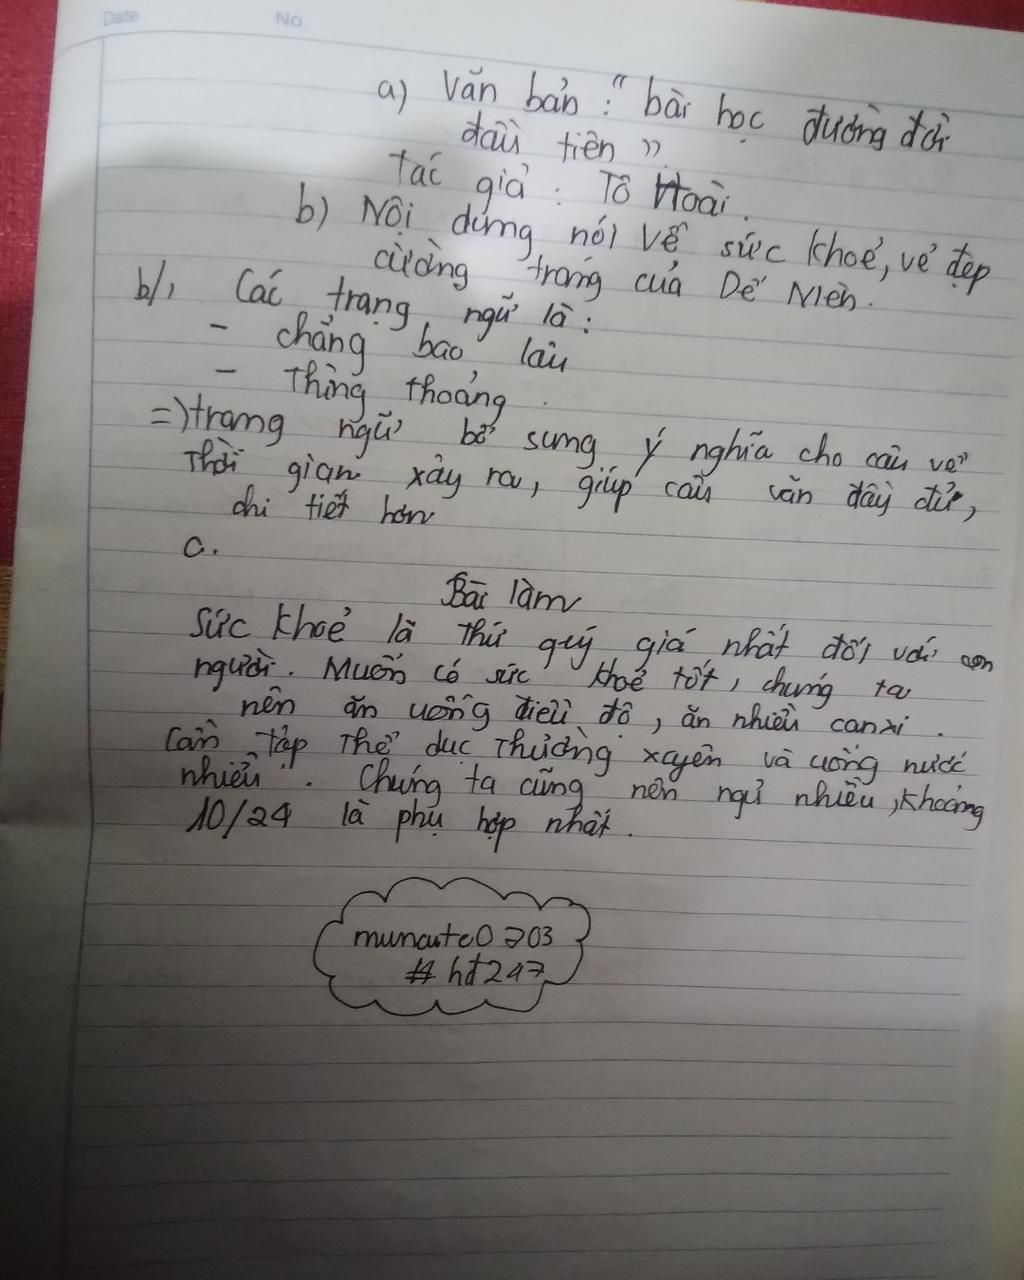 Date No.
a) Văn bản : "bài học đường đời
đầu tiên".
Tác giả : Tô Hoài.
b) Nội dung nói về sức khoẻ, vẻ đẹp
cường tráng của Dế Mèn.
b/, Các trạng ngữ là:
- chẳng bao lâu
- Thỉng thoảng.
=) trạng ngữ bổ sung ý nghĩa cho câu về
Thời gian xảy ra, giúp câu văn đầy đủ,
chi tiết hơn
c.
Bài làm
Sức khoẻ là thứ quý giá nhất đối với con
người. Muốn có sức khoẻ tốt, chúng ta
nên ăn uống điều độ, ăn nhiều canxi.
Cần tập thể dục thường xuyên và uống nước
nhiều. Chúng ta cũng nên ngủ nhiều, khoảng
10/24 là phụ hợp nhất.
muncute0703
# hđ247